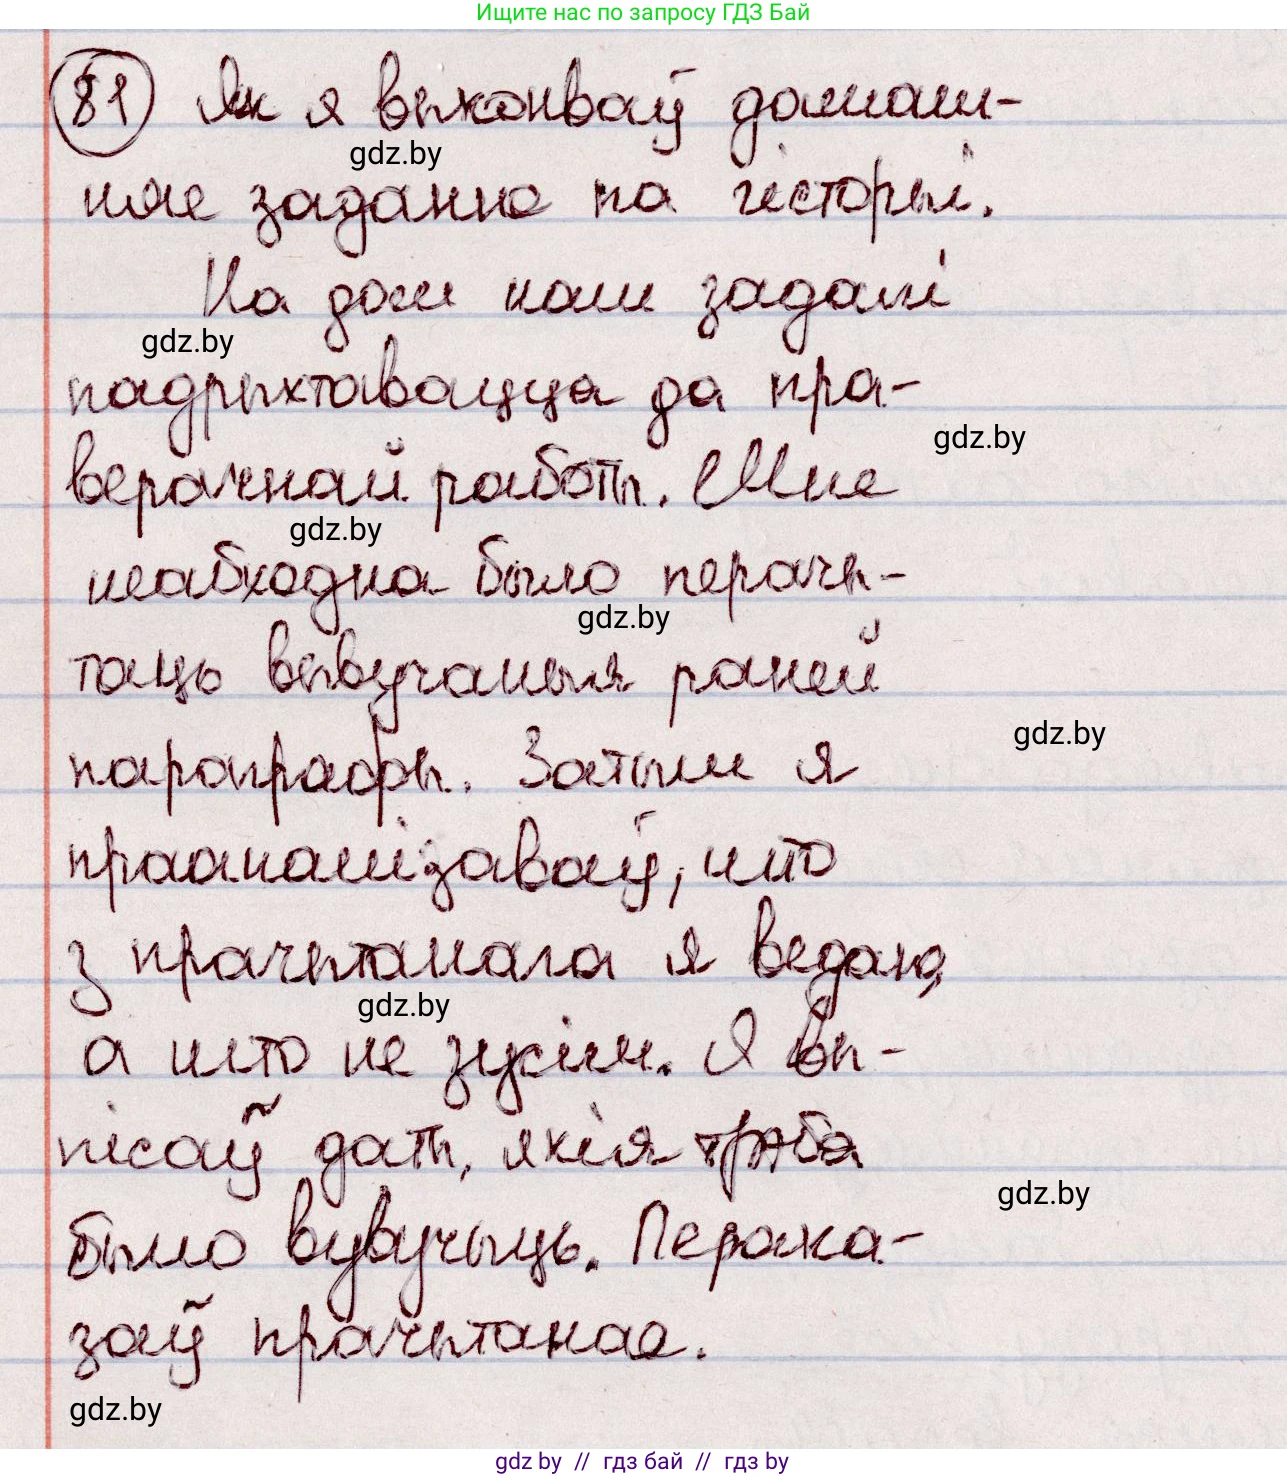 Ищите нас по запросу ГДЗ Бай
81 Як я выконваў дамаш-
няе заданне па гісторыі.
gdz.by
На дом нам задалі
gdz.by
падрыхтавацца да пра-
верачнай работы. Мне
gdz.by
gdz.by
неабходна было перачы-
gdz.by
таць вывучаныя раней
параграфы. Затым я
gdz.by
прааналізаваў, што
з прачытанага я ведаю,
gdz.by
а што не зусім. Я вы-
пісаў даты, якія трэба
gdz.by
было вувучыць. Перака-
заў прачытанае.
gdz.by
gdz by // гдз бай // гдз by